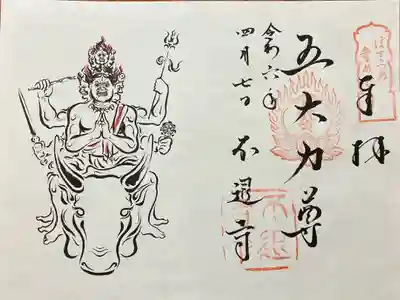 奉拝
五大力尊
令和六年
四月七日
不退寺